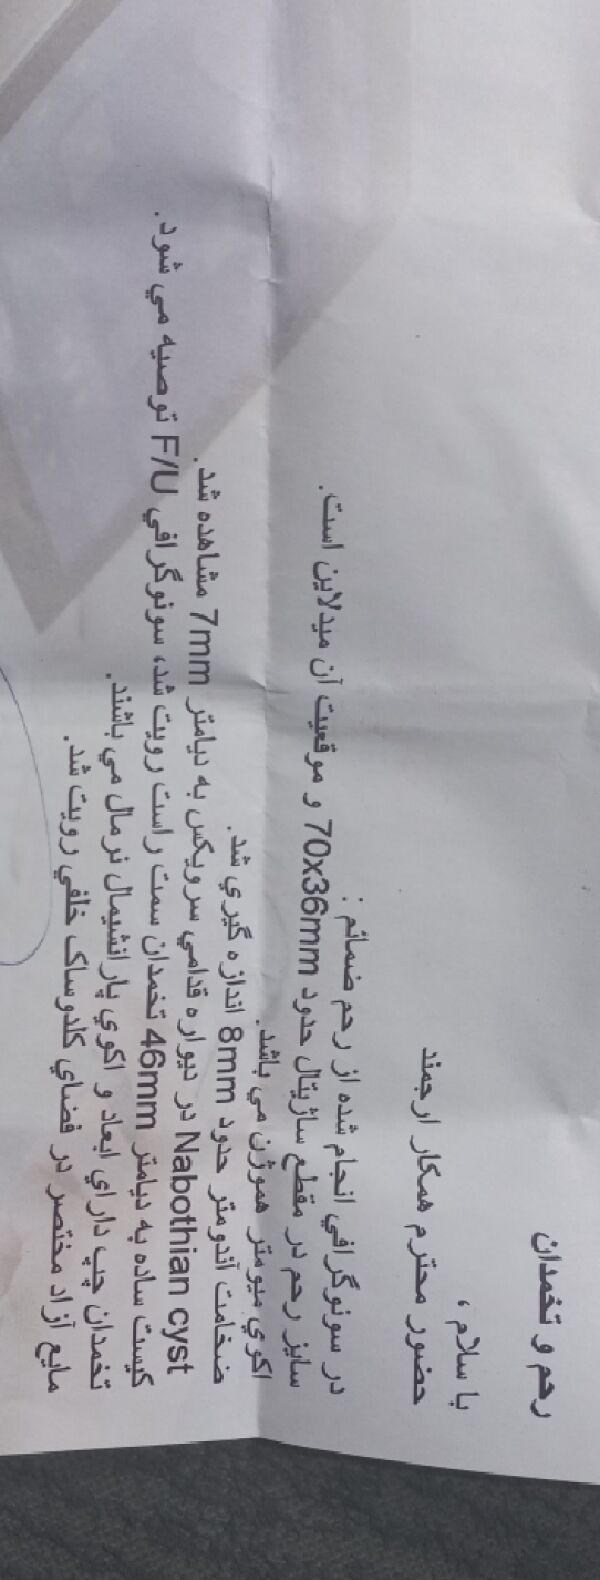 رحم و تخمدان
با سلام ،
حضور محترم همکار ارجمند
در سونوگرافي انجام شده از رحم ضمائم :
سايز رحم در مقطع ساژيتال حدود 70x36mm و موقعيت آن ميدلاين است.
اکوي ميومتر هموژن مي باشد.
ضخامت آندومتر حدود 8mm اندازه گيري شد.
Nabothian cyst در ديواره قدامي سرويکس به ديامتر 7mm مشاهده شد.
کيست ساده به ديامتر 46mm تخمدان سمت راست رويت شد، سونوگرافي F/U توصيه مي شود.
تخمدان چپ داراي ابعاد و اکوي پارانشيمال نرمال مي باشند.
مايع آزاد مختصر در فضاي کلدوساک خلفي رويت شد.